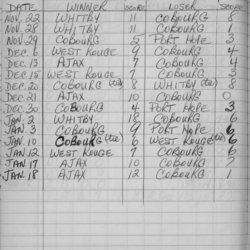 DATE WINNER SCORE LOSER SCORE
NOV. 22 WHITBY 11 COBOURG 8
NOV. 28 WHITBY COBOURG 1
NOV 29 COBOURG 5 PORT HOPE 3
DEC. 6 WEST ROUGE 9 COBOURG 4
DEC. 13 AJAX 7 COBOURG 4
DEC. 15 WEST ROUGE 7 COBOURG 3
DEC. 20 COBOURG (tie) 8 WHITBY (tie) 8
DEC. 21 AJAX 10 COBOURG 0
DEC. 30 COBOURG 4 PORT HOPE 3
JAN. 2 WHITBY 18 COBOURG 6
JAN. 3 COBOURG 9 PORT HOPE 6
JAN. 10 COBOURG (tie) 6 WEST ROUGE (tie) 6
JAN. 12 WEST ROUGE 7 COBOURG 6
JAN. 17 AJAX 10 COBOURG
JAN. 18 AJAX 12 COBOURG 1